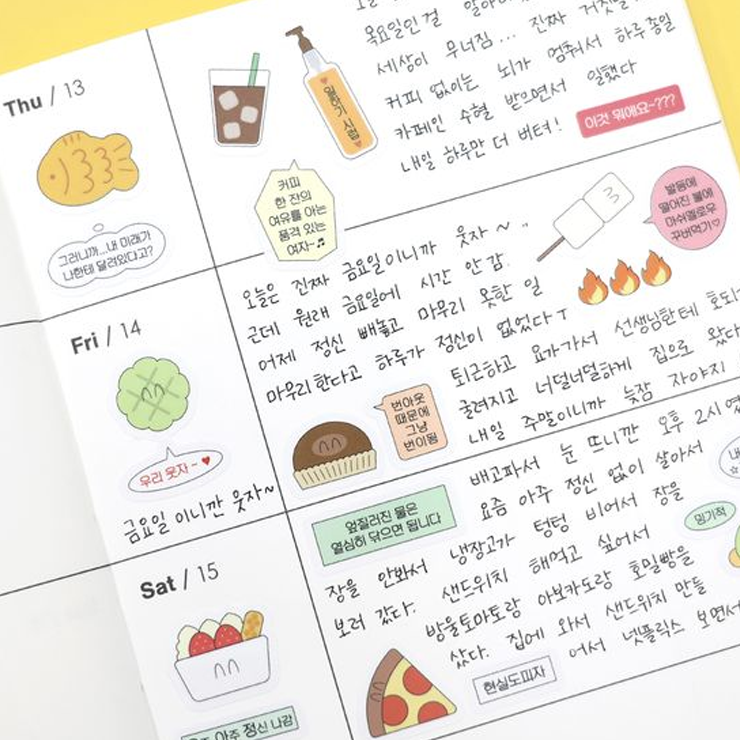 Thu / 13
그러니까...내 미래가
나한테 달려있다고?
목요일인걸
진짜
세상이 무너짐... 뇌가 멈춰서 하루종일
커피 없이는
카페인 수혈 받으면서 일했다
내일 하루만 더 버텨!
이것 뭐에요~???
일하기 시럽
커피
한 잔의
여유를 아는
품격 있는
여자~♬
발등에
떨어진 불에
마쉬멜로우
꾸버먹기♡
Fri / 14
우리 웃자~♥
금요일 이니깐 웃자~
오늘은 진짜 금요일이니까 웃자 ~
근데 원래 금요일에 시간 안 감.
어제 정신 빼놓고 마무리 못한 일
마무리한다고 하루가 정신이 없었다ㅜ
퇴근하고 요가가서 선생님한테
굴려지고 너덜너덜하게 집으로 왔다
내일 주말이니까 늦잠 자야지
번아웃
때문에
그냥
번이됨
Sat / 15
아주 정신 나감
엎질러진 물은
열심히 닦으면 됩니다
배고파서 눈 뜨니깐 오후 2시
요즘 아주 정신 없이 살아서
장을 안봐서 냉장고가 텅텅 비어서 장을
보러 갔다. 샌드위치 해먹고 싶어서
방울토마토랑 아보카도랑 호밀빵을
샀다. 집에 와서 샌드위치 만들
어서 넷플릭스 보면서
현실도피자
임기적